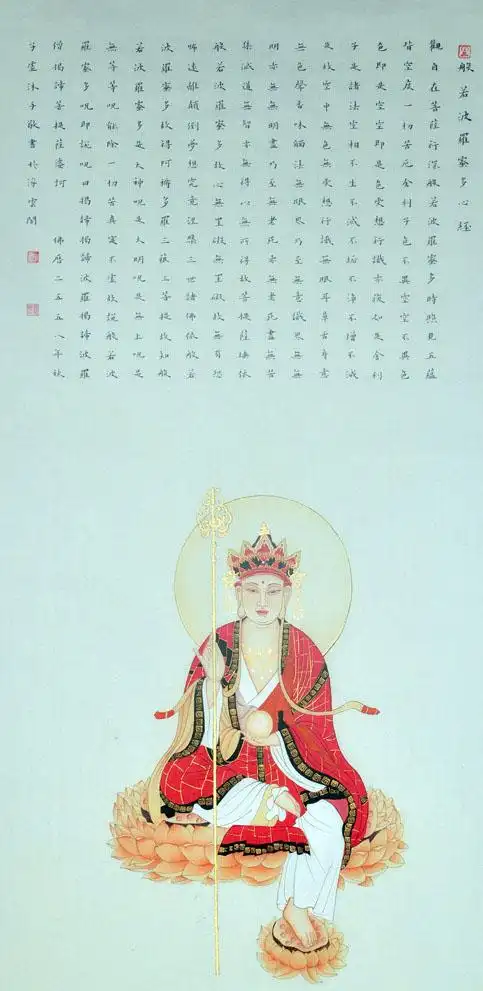 般若波羅蜜多心經
觀自在菩薩行深般若波羅蜜多時照見五蘊
皆空度一切苦厄舍利子色不異空空不異色
色即是空空即是色受想行識亦復如是舍利
子是諸法空相不生不滅不垢不淨不增不減
是故空中無色無受想行識無眼耳鼻舌身意
無色聲香味觸法無眼界乃至無意識界無無
明亦無無明盡乃至無老死亦無老死盡無苦
集滅道無智亦無得以無所得故菩提薩埵依
般若波羅蜜多故心無罣礙無罣礙故無有恐
怖遠離顛倒夢想究竟涅槃三世諸佛依般若
波羅蜜多故得阿耨多羅三藐三菩提故知般
若波羅蜜多是大神呪是大明呪是無上呪是
無等等呪能除一切苦真實不虛故說般若波
羅蜜多呪即說呪曰揭諦揭諦波羅揭諦波羅
僧揭諦菩提薩婆訶 佛曆二五五八年秋
子虛沐手敬書於海雲閣